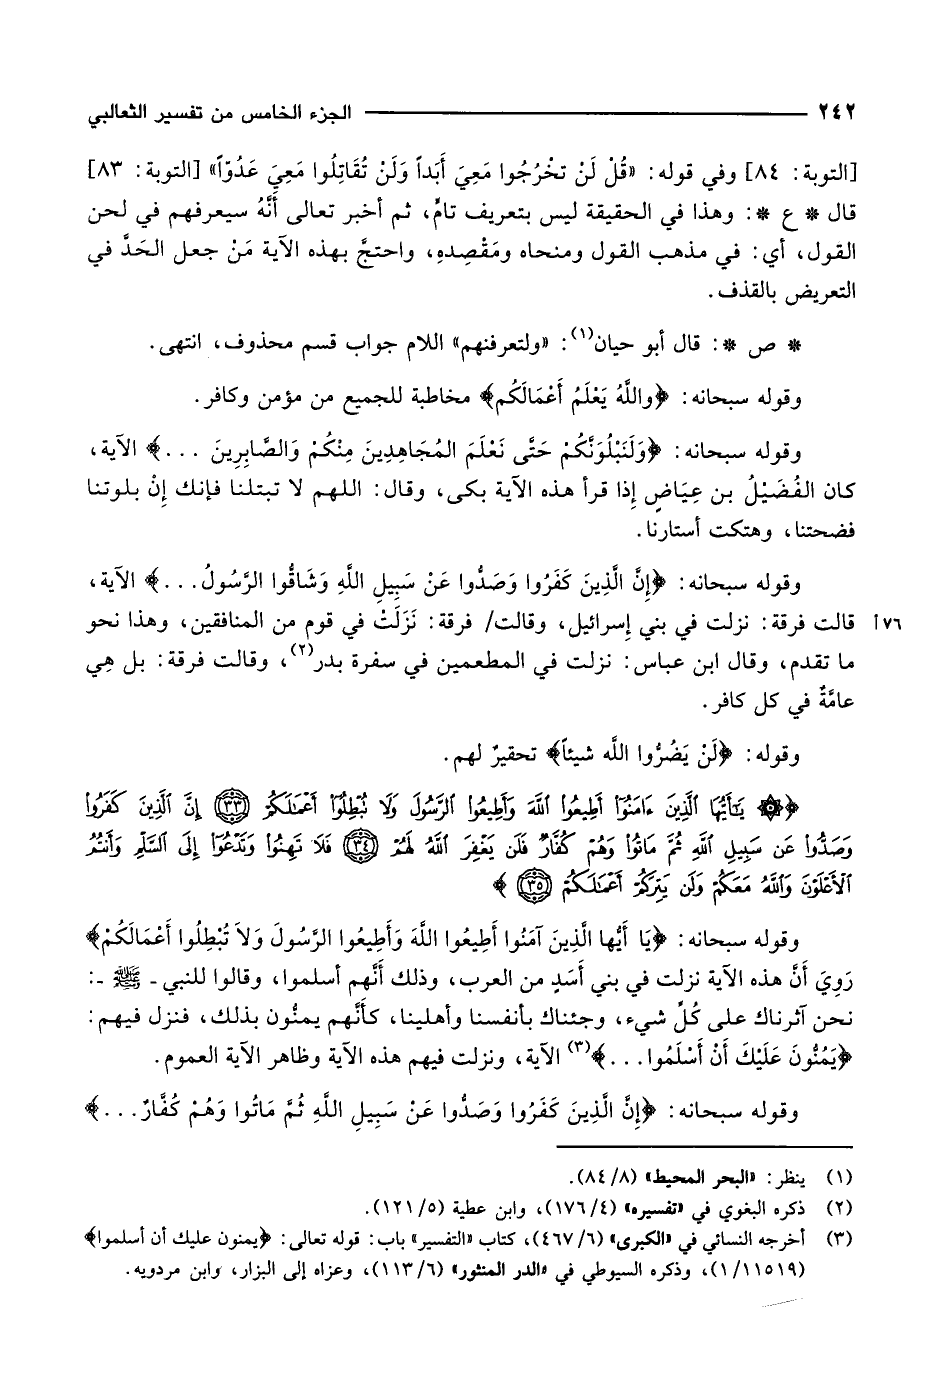 ٢٤٢ ــــــــ الجزء الخامس من تفسير الثعالبي
[التوبة: ٨٤] وفي قوله: «قُلْ لَنْ تخْرُجُوا مَعِيَ أَبَداً وَلَنْ تُقَاتِلُوا مَعِيَ عَدُوّاً» [التوبة: ٨٣]
قال * ع *: وهذا في الحقيقة ليس بتعريف تامٍّ، ثم أخبر تعالى أَنَّهُ سيعرفهم في لحن
القول، أي: في مذهب القول ومنحاه ومَقْصِدِهِ، واحتجَّ بهذه الآية مَنْ جعل الحَدَّ في
التعريض بالقذف.
* ص *: قال أبو حيان(١): «ولتعرفنهم» اللام جواب قسم محذوف، انتهى.
وقوله سبحانه: ﴿واللَّهُ يَعْلَمُ أَعْمَالَكُم﴾ مخاطبة للجميع من مؤمن وكافر.
وقوله سبحانه: ﴿وَلَنَبْلُوَنَّكُمْ حَتَّى نَعْلَمَ المُجَاهِدِينَ مِنْكُمْ وَالصَّابِرِينَ ...﴾ الآية،
كان الفُضَيْلُ بن عِيَاضٍ إذا قرأ هذه الآية بكى، وقال: اللهم لا تبتلنا فإنك إنْ بلوتنا
فضحتنا، وهتكت أستارنا.
وقوله سبحانه: ﴿إِنَّ الَّذِينَ كَفَرُوا وَصَدُّوا عَنْ سَبِيلِ اللَّهِ وَشَاقُّوا الرَّسُولُ...﴾ الآية،
٧٦أ قالت فرقة: نزلت في بني إسرائيل، وقالت/ فرقة: نَزَلَتْ في قوم من المنافقين، وهذا نحو
ما تقدم، وقال ابن عباس: نزلت في المطعمين في سفرة بدر(٢)، وقالت فرقة: بل هِي
عامَّةٌ في كل كافر.
وقوله: ﴿لَنْ يَضُرُّوا اللَّه شيئاً﴾ تحقيرٌ لهم.
﴿۞ يَٰٓأَيُّهَا ٱلَّذِينَ ءَامَنُوٓا۟ أَطِيعُوا۟ ٱللَّهَ وَأَطِيعُوا۟ ٱلرَّسُولَ وَلَا نُبْطِلُوٓا۟ أَعْمَٰلَكُمْ ﴿٣٣﴾ إِنَّ ٱلَّذِينَ كَفَرُوا۟
وَصَدُّوا۟ عَن سَبِيلِ ٱللَّهِ ثُمَّ مَاتُوا۟ وَهُمْ كُفَّارٌ فَلَن يَغْفِرَ ٱللَّهُ لَهُمْ ﴿٣٤﴾ فَلَا تَهِنُوا۟ وَتَدْعُوٓا۟ إِلَى ٱلسَّلْمِ وَأَنتُمُ
ٱلْأَعْلَوْنَ وَٱللَّهُ مَعَكُمْ وَلَن يَتِرَكُمْ أَعْمَٰلَكُمْ ﴿٣٥﴾ ﴾
وقوله سبحانه: ﴿يَا أَيُّها الَّذِينَ آمَنُوا أَطِيعُوا اللَّهَ وَأَطِيعُوا الرَّسُولَ وَلاَ تُبْطِلُوا أَعْمَالَكُمْ﴾
رَوِيَ أَنَّ هذه الآية نزلت في بني أَسَدٍ من العرب، وذلك أنَّهم أسلموا، وقالوا للنبي ـ ﷺ ـ:
نحن آثرناك على كُلِّ شيء، وجئناك بأنفسنا وأهلينا، كأنَّهم يمنُّون بذلك، فنزل فيهم:
﴿يَمُنُّونَ عَلَيْكَ أَنْ أَسْلَمُوا...﴾(٣) الآية، ونزلت فيهم هذه الآية وظاهر الآية العموم.
وقوله سبحانه: ﴿إِنَّ الَّذِينَ كَفَرُوا وَصَدُّوا عَنْ سَبِيلِ اللَّهِ ثُمَّ مَاتُوا وَهُمْ كُفَّارٌ...﴾
(١) ينظر: «البحر المحيط» (٨/ ٨٤).
(٢) ذكره البغوي في «تفسيره» (٤/ ١٧٦)، وابن عطية (٥/ ١٢١).
(٣) أخرجه النسائي في «الكبرى» (٦/ ٤٦٧)، كتاب «التفسير» باب: قوله تعالى: ﴿يمنون عليك أن أسلموا﴾
(١١٥١٩/ ١)، وذكره السيوطي في «الدر المنثور» (٦/ ١١٣)، وعزاه إلى البزار، وابن مردويه.